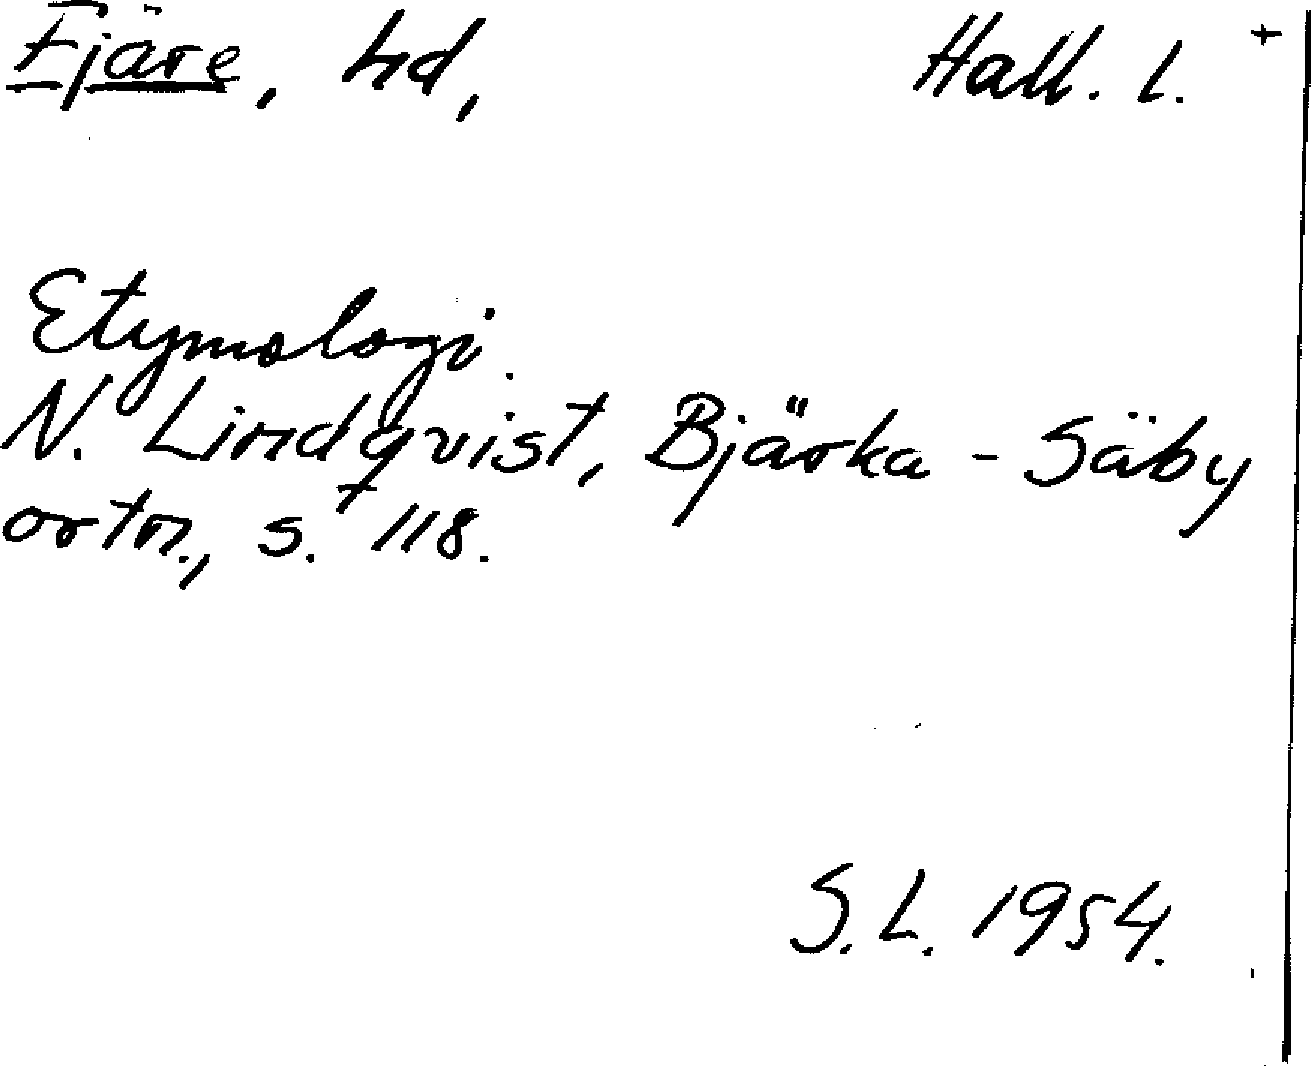 Fjäre, hd, Hall. l. +
Etymologi.
N. Lindqvist, Bjärka-Säby
ortn., s. 118.
S.L. 1954.